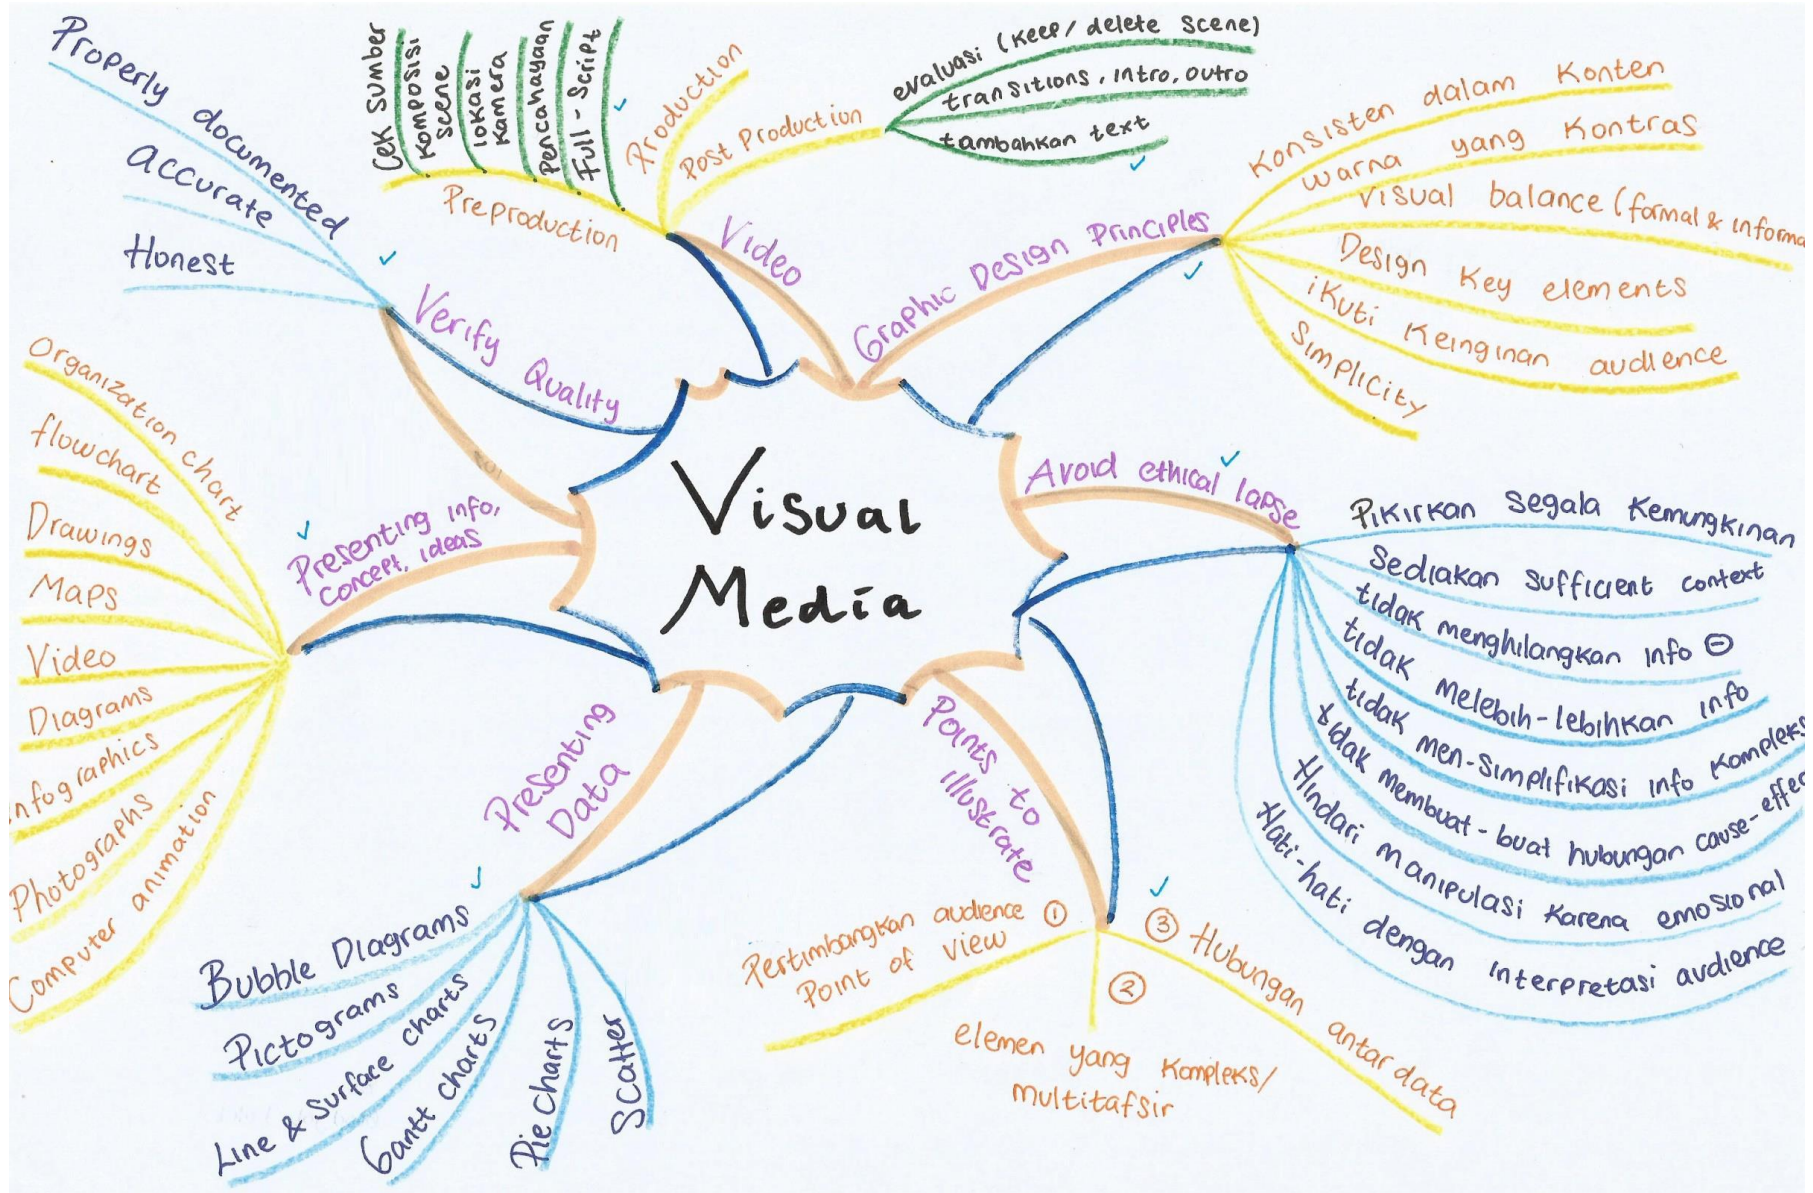 Visual
Media
Video
Preproduction
Cek sumber
Komposisi
scene
lokasi
kamera
Pencahayaan
Full - Script
Production
Post Production
evaluasi (keep / delete scene)
transitions, intro, outro
tambahkan text
Graphic Design Principles
Konsisten dalam konten
Warna yang kontras
Visual balance (formal & informa
Design key elements
ikuti keinginan audience
Simplicity
Avoid ethical lapse
Pikirkan segala kemungkinan
Sediakan sufficient context
tidak menghilangkan info ⊖
tidak melebih-lebihkan info
tidak men-simplifikasi info kompleks
tidak membuat-buat hubungan cause-effec
Hindari manipulasi karena emosional
Hati-hati dengan interpretasi audience
Points to
illustrate
Pertimbangkan audience ①
Point of view
②
elemen yang kompleks/
multitafsir
③ Hubungan antar data
Presenting
Data
Bubble Diagrams
Pictograms
Line & Surface charts
Gantt charts
Pie charts
Scatter
Presenting info,
concept, ideas
Organization chart
flowchart
Drawings
Maps
Video
Diagrams
nfographics
Photographs
Computer animation
Verify Quality
Properly documented
accurate
Honest